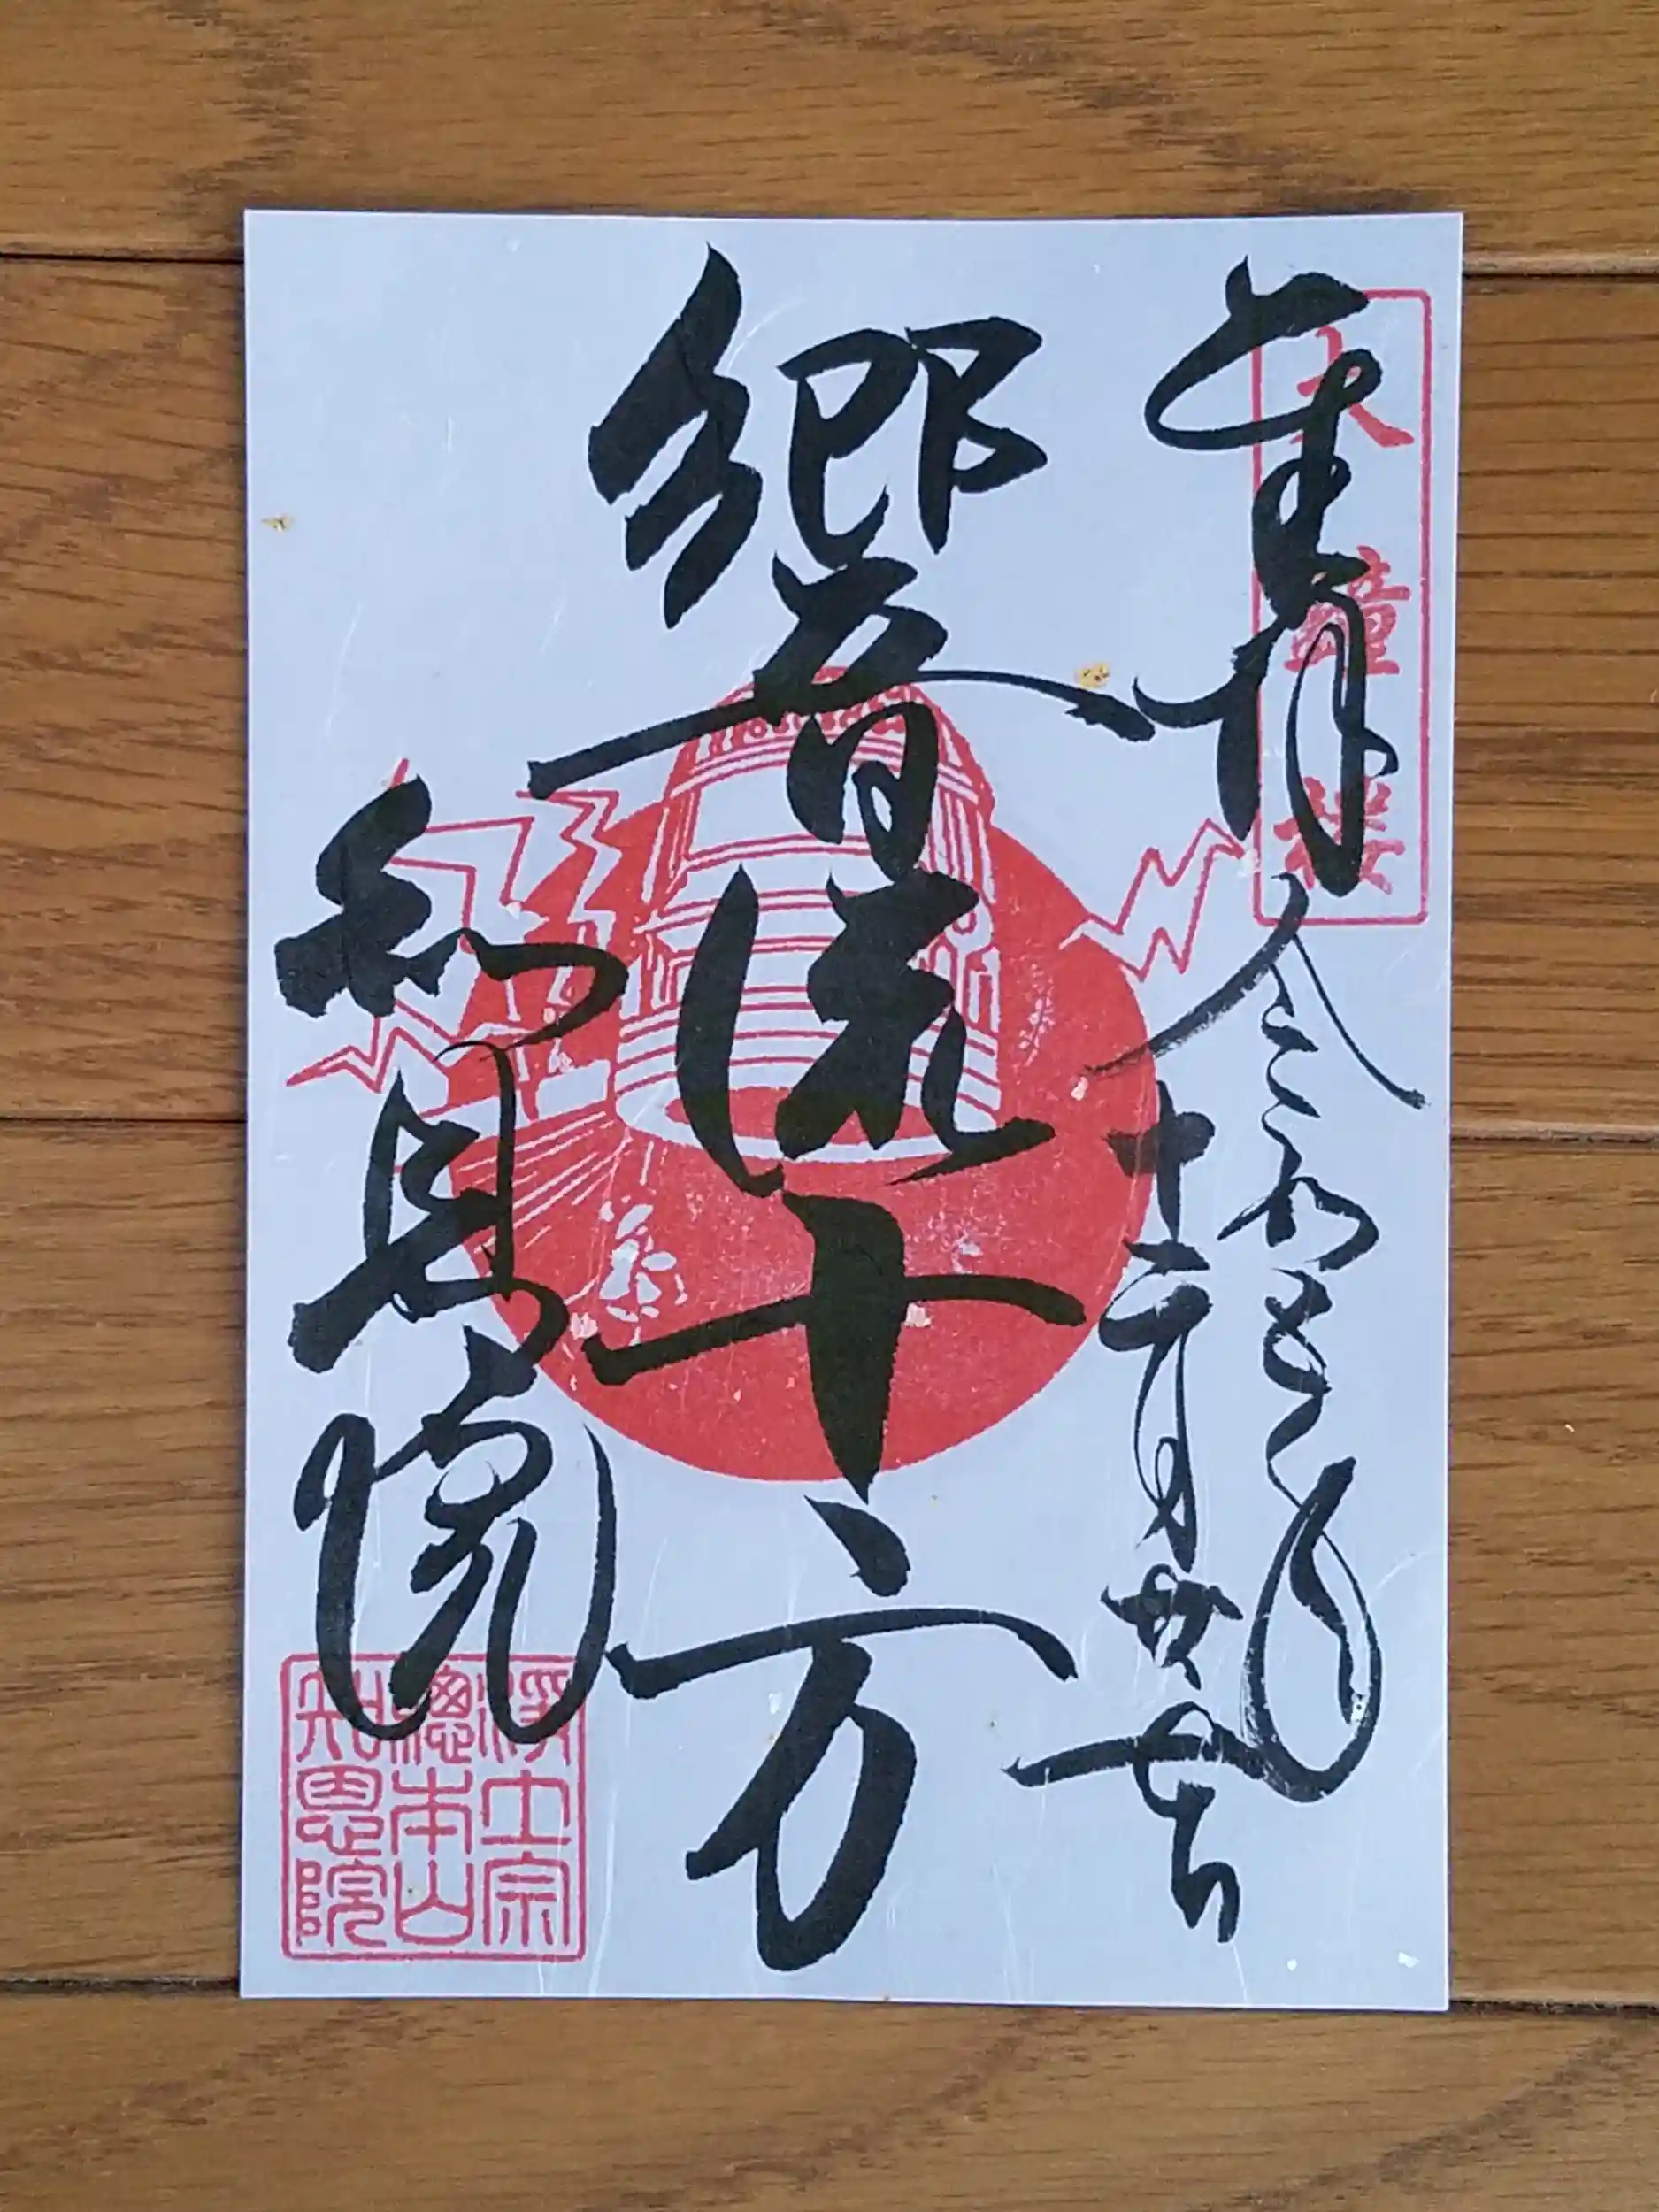 奉拝
大鐘楼
令和
十二月
響流十方
知恩院
浄土宗
總本山
知恩院